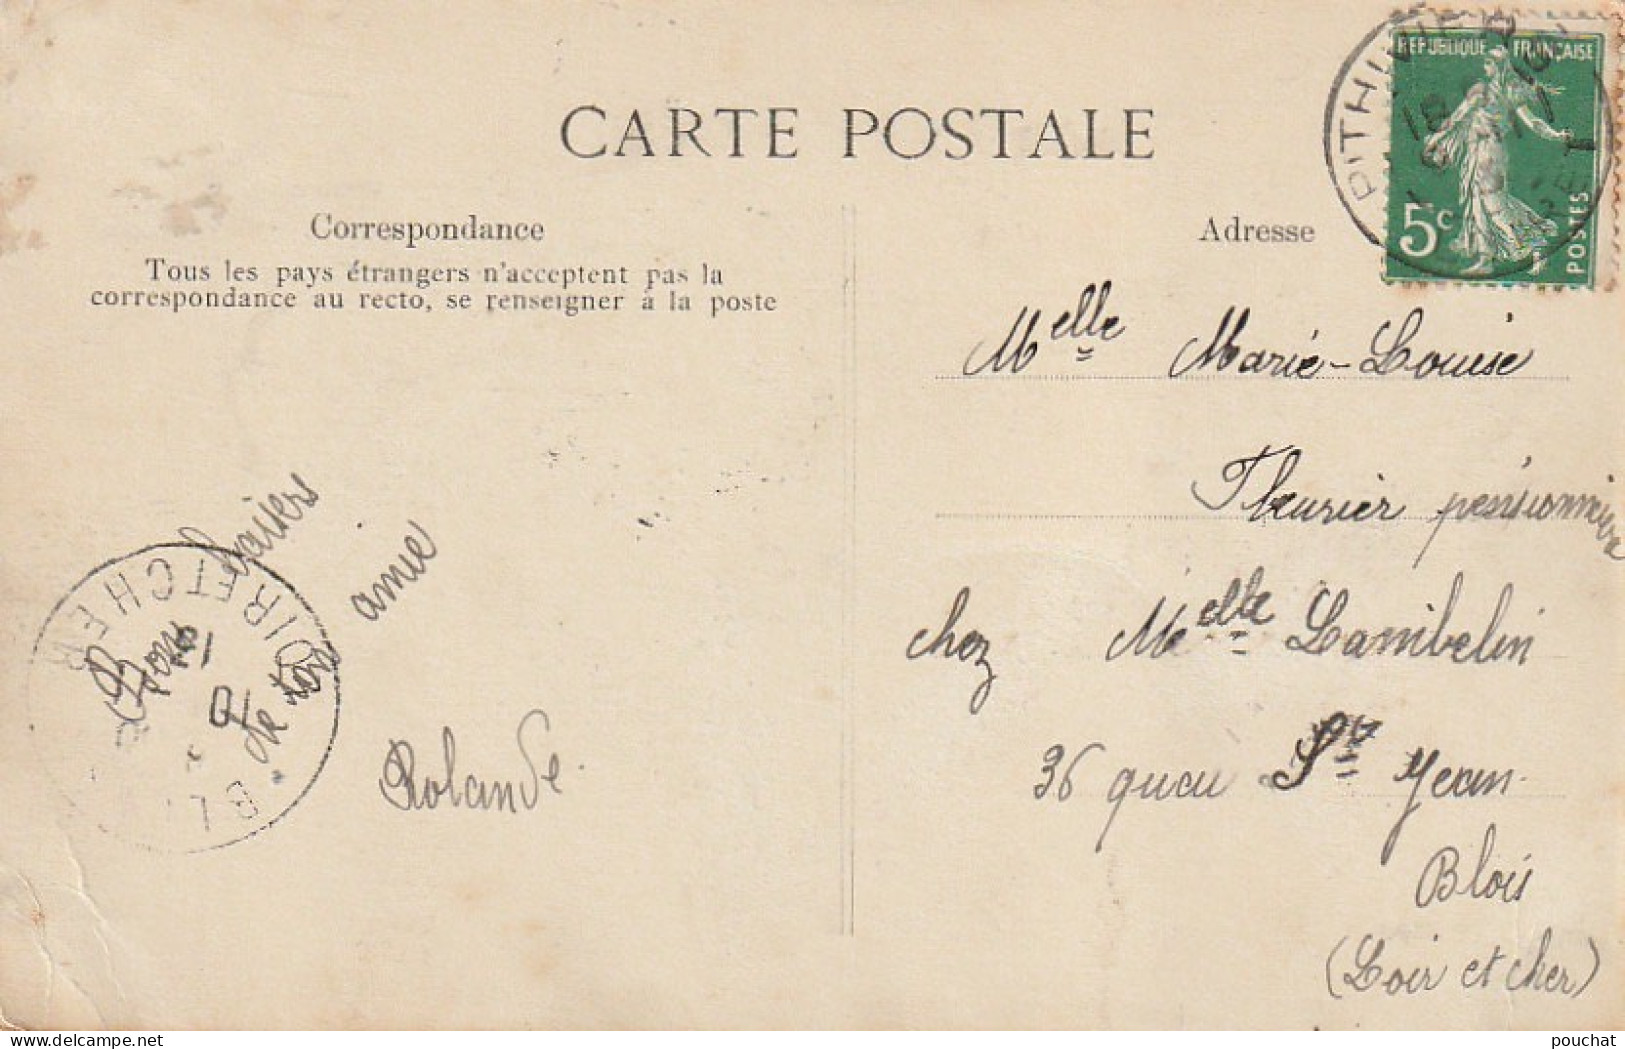 CARTE POSTALE
Correspondance
Tous les pays étrangers n'acceptent pas la
correspondance au recto, se renseigner à la poste
Bons baisers
de ton amie
Rolande.
LOIR ET CHER
BL
Adresse
PITHIVIERS
RÉPUBLIQUE FRANÇAISE
5c
POSTES
Melle Marie-Louise
Fleurier pensionnaire
chez Melle Lambelin
36 quai St Jean
Blois
(Loir et cher)
pouchat